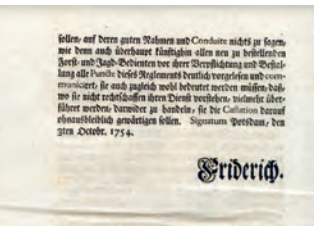 sollen, auf deren guten Nahmen und Conduite nichts zu sagen,
wie denn auch überhaupt künftighin allen neu zu bestellenden
Forst- und Jagd-Bedienten vor ihrer Verpflichtung und Bestal-
lung alle Puncte dieses Reglements deutlich vorgelesen und com-
municiret, sie auch zugleich wohl bedeutet werden müssen, daß,
wo sie nicht rechtschaffen ihren Dienst vorstehen, vielmehr über-
führet werden, darwider zu handeln, sie die Cassation darauf
ohnausbleiblich gewärtigen sollen. Signatum Potsdam, den
3ten Octobr. 1754.
Friderich.